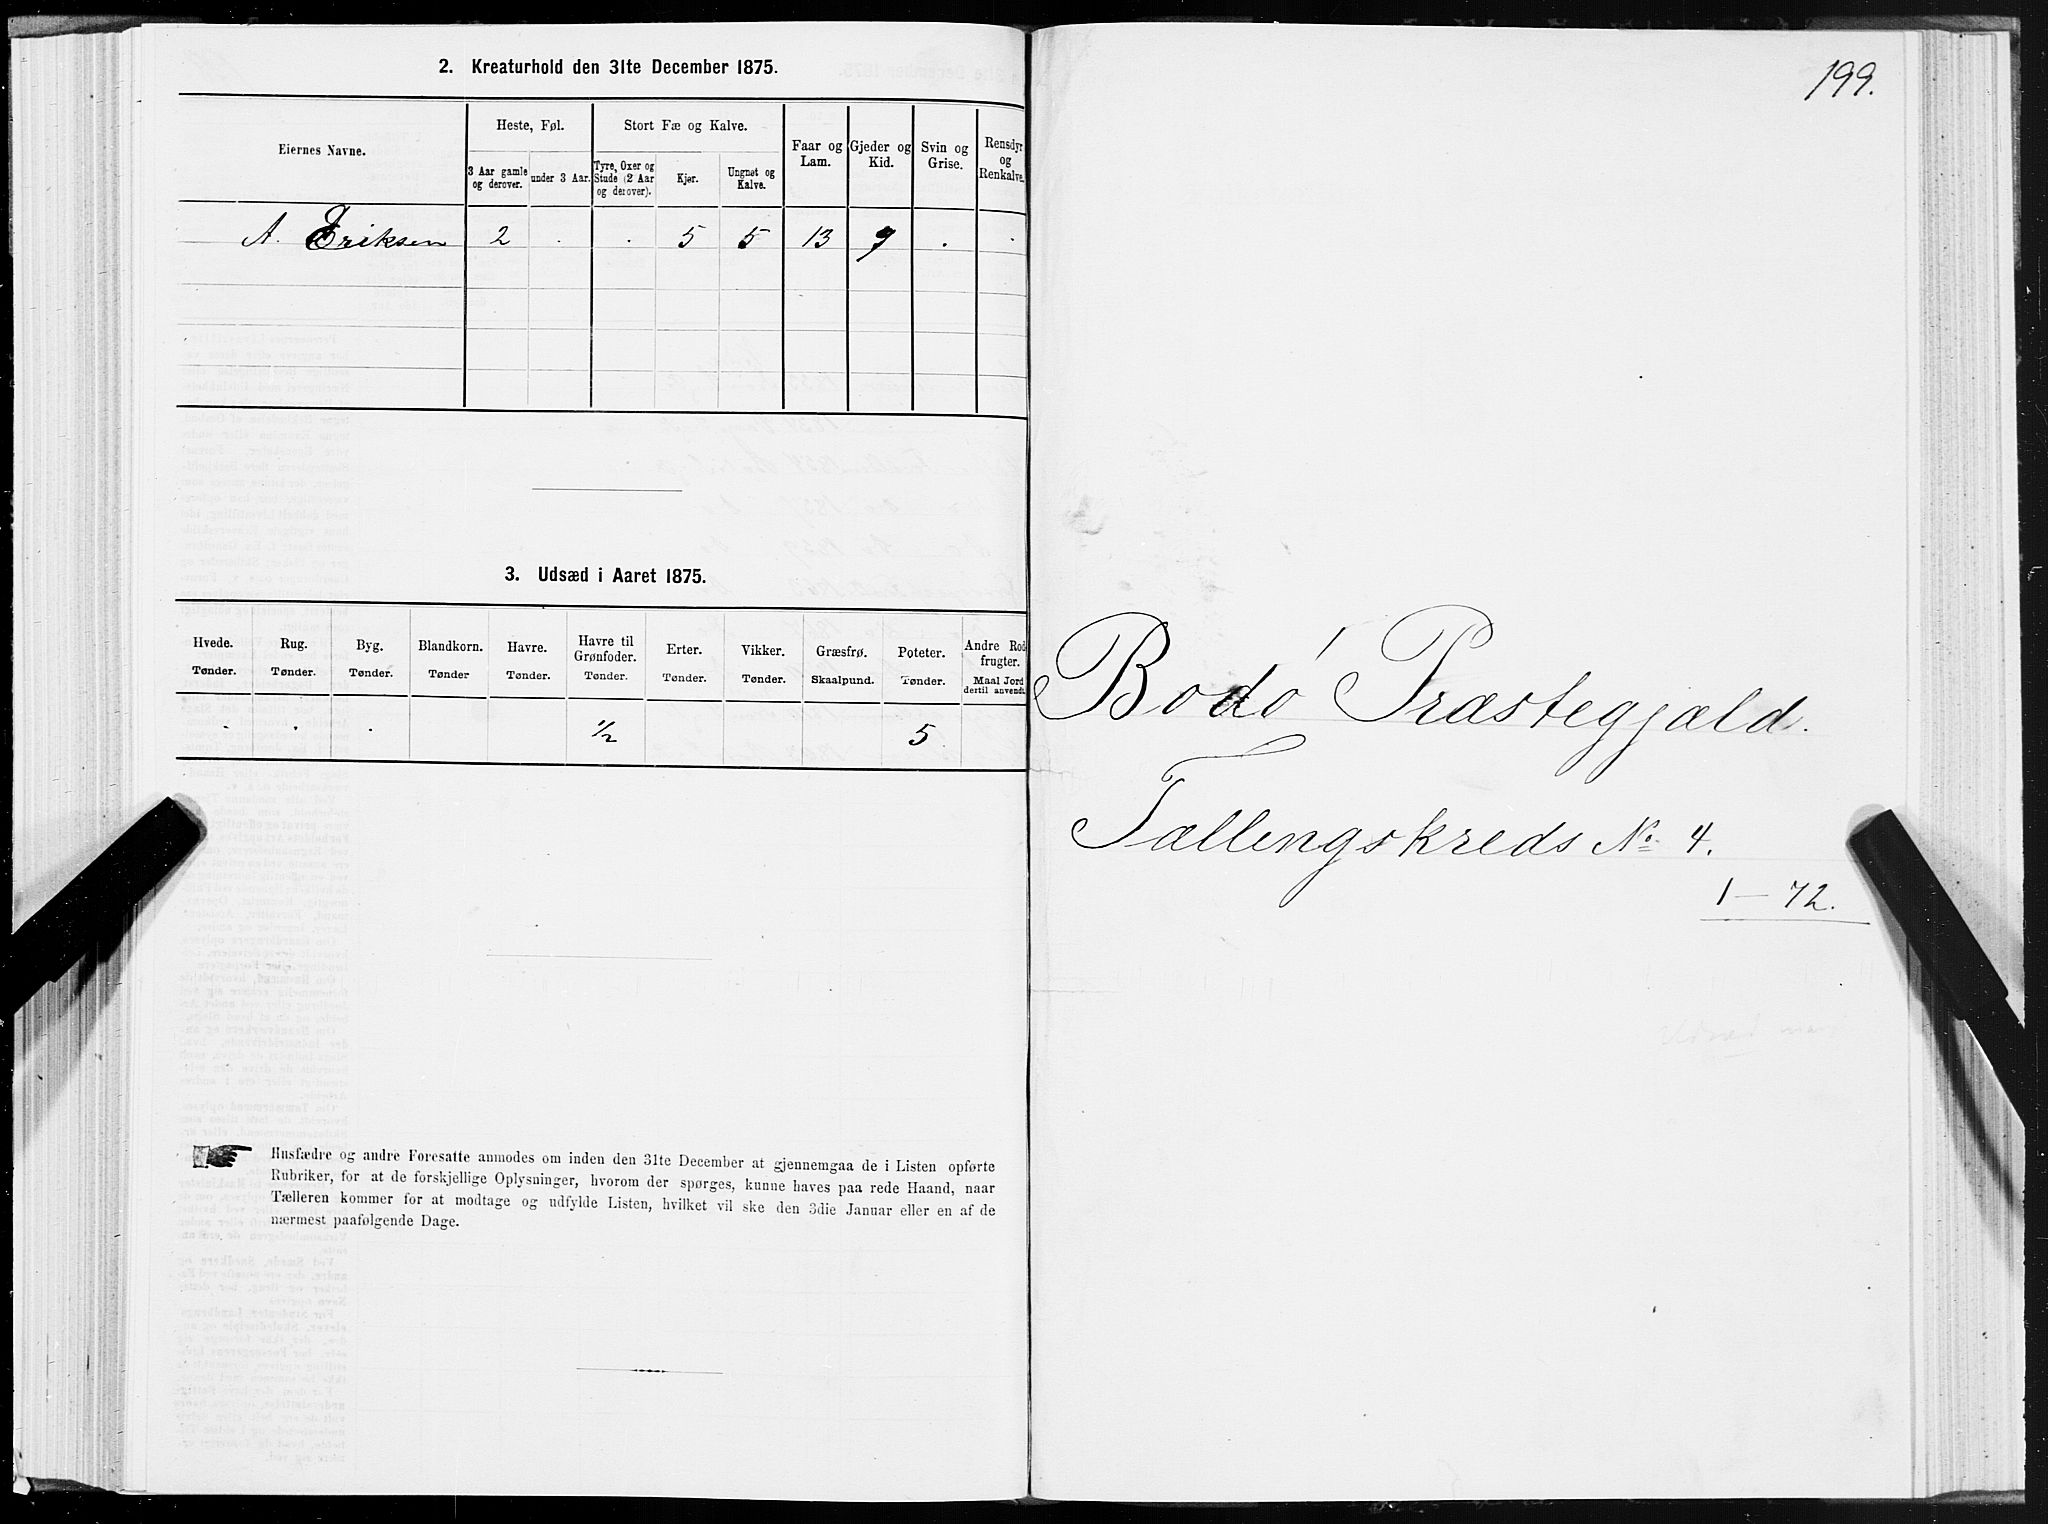 2. Kreaturhold den 31te December 1875.
Eiernes Navne.
Heste, Føl.
Stort Fæ og Kalve.
Faar og Lam.
Gjeder og Kid.
Svin og Grise.
Rensdyr og Renkalve.
3 Aar gamle og derover.
under 3 Aar.
Tyre, Oxer og Stude (2 Aar og derover).
Kjør.
Ungnøt og Kalve.
A. Eriksen 2 . . 5 5 13 9 . .
3. Udsæd i Aaret 1875.
Hvede. Rug. Byg. Blandkorn. Havre. Havre til Grønfoder. Erter. Vikker. Græsfrø. Poteter. Andre Rodfrugter.
Tønder. Tønder. Tønder. Tønder Tønder. Tønder. Tønder. Tønder. Skaalpund. Tønder. Maal Jord dertil anvendt.
. . . 1/2 5
Husfædre og andre Foresatte anmodes om inden den 31te December at gjennemgaa de i Listen opførte
Rubriker, for at de forskjellige Oplysninger, hvorom der spørges, kunne haves paa rede Haand, naar
Tælleren kommer for at modtage og udfylde Listen, hvilket vil ske den 3die Januar eller en af de
nærmest paafølgende Dage.
199.
Bodø Præstegjæld.
Tællingskreds No. 4.
1 — 72.